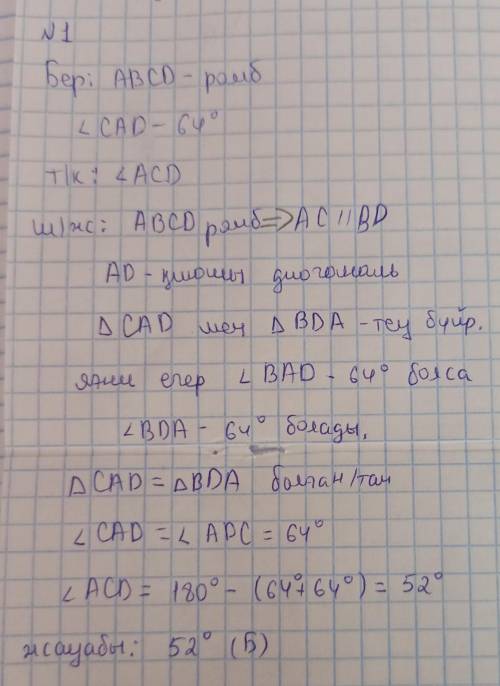 №1
Бер: ABCD - ромб
∠CAD - 64°
т/к: ∠ACD
ш/жс: ABCD ромб => AC // BD
AD - қиюшы диогональ
△CAD мен △BDA - тең бүйр.
яғни егер ∠BAD - 64° болса
∠BDA - 64° болады,
△CAD = △BDA болған/тан
∠CAD = ∠ADC = 64°
∠ACD = 180° - (64°+64°) = 52°
жауабы: 52° (Б)